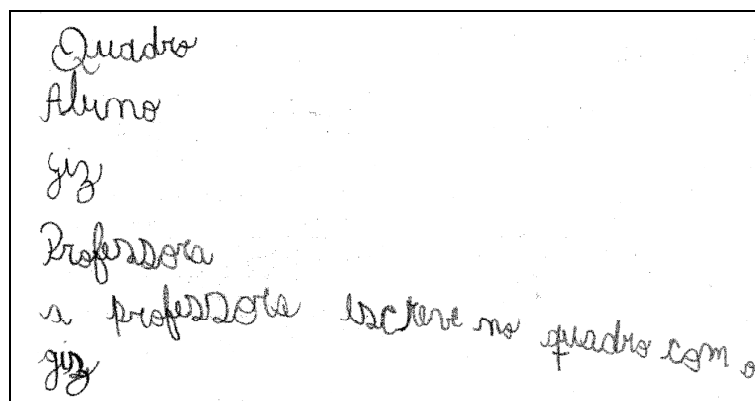 Quadro
Aluno
giz
Professora
a professora escreve no quadro com o
giz